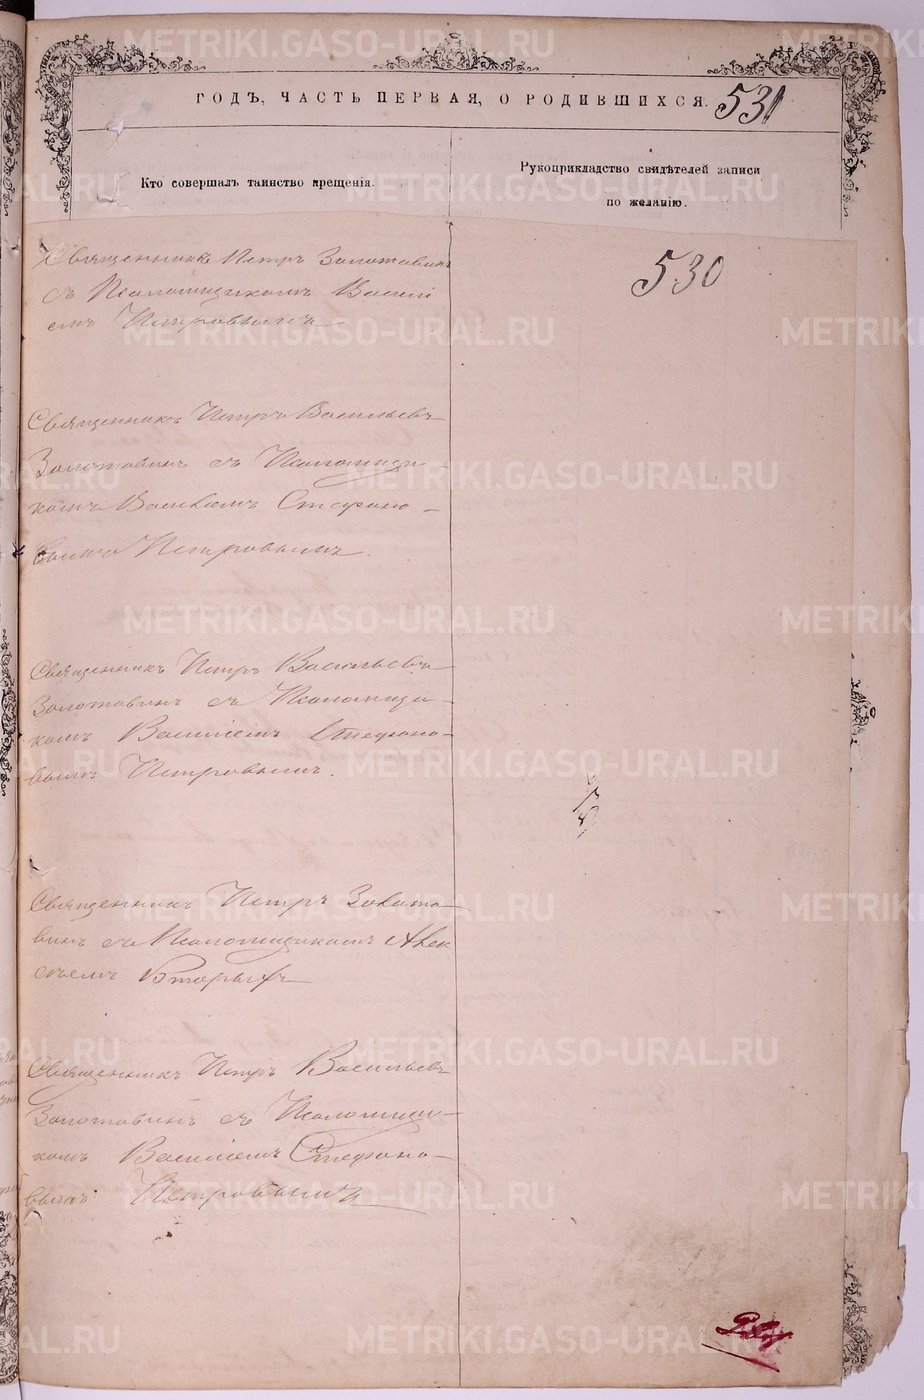 ГОДЪ, ЧАСТЬ ПЕРВАЯ, О РОДИВШИХСЯ. 531
Кто совершалъ таинство крещенія.
Рукоприкладство свидѣтелей записи
по желанію.
530
Священникъ Петръ Золотавинъ
съ Псаломщикомъ Василі
емъ Петровымъ
Священникъ Петръ Васильевъ
Золотавинъ съ Псаломщи-
комъ Василіемъ Стефано-
вымъ Петровымъ.
Священникъ Петръ Васильевъ
Золотавинъ съ Псаломщи-
комъ Василіемъ Стефано-
вымъ Петровымъ.
Священникъ Петръ Золота-
винъ съ Псаломщикомъ Алек
сѣемъ Вторыхъ
Священникъ Петръ Васильевъ
Золотавинъ съ Псаломщи-
комъ Василіемъ Стефано-
вымъ Петровымъ
METRIKI.GASO-URAL.RU